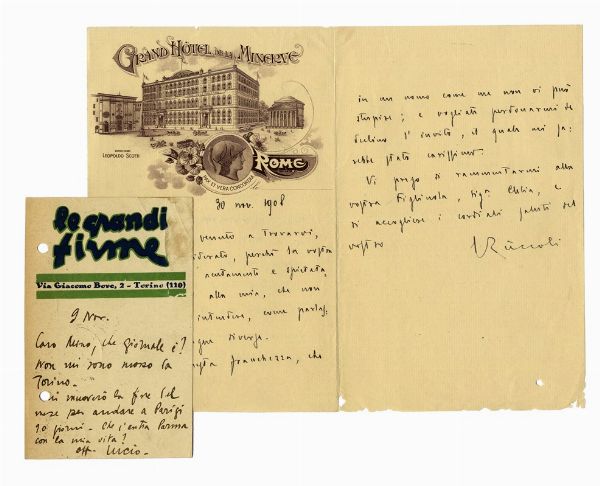 GRAND HÔTEL DE LA MINERVE
PROPRIÉTAIRE
LEOPOLDO SCOTTI
PAX ET VERA CONCORDIA
ROME
30 nov. 1908
venuto a trovarvi,
perché la vostra
acutamente e spietata
alla mia, che non
intendere, come parlas:
diverse.
franchezza, che
in un uomo come me non vi può
stupire; e vogliate perdonarmi se
declino l'invito, il quale mi sa:
rebbe stato carissimo.
Vi prego di rammentarmi alla
vostra figliuola, sig.a Clelia, e
di accogliere i cordiali saluti del
vostro
le grandi
firme
Via Giacomo Bove, 2 – Torino (110)
9 Nov.
Caro Meno, che giornale è?
Non mi sono mosso da
Torino.
mi muoverò la fine del
mese per andare a Parigi
10 giorni. Che c'entra Parma
con la mia vita?
aff. Lucio.